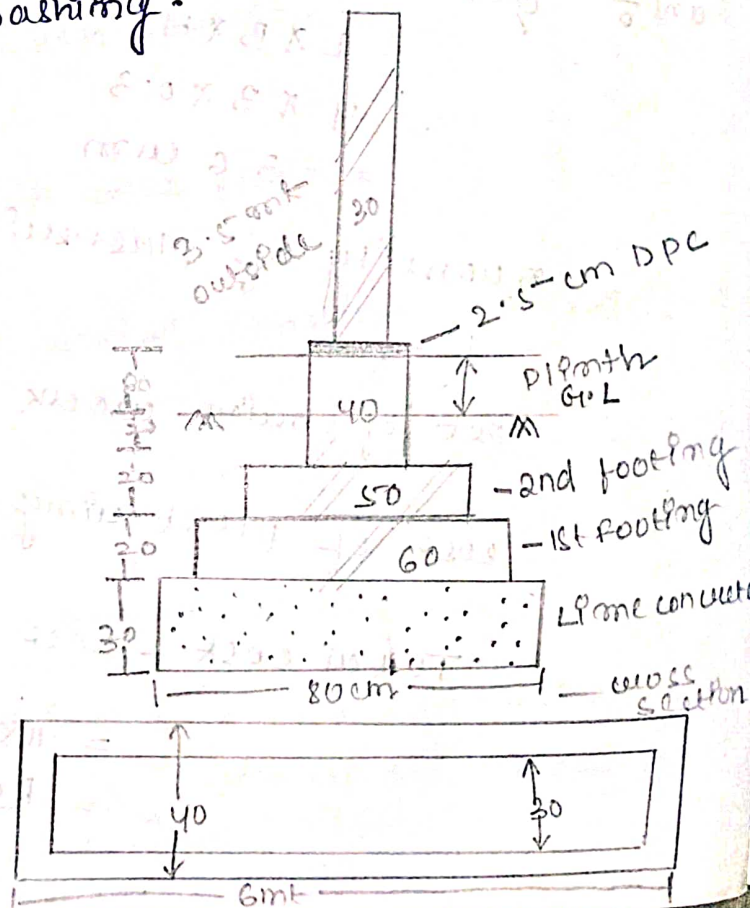 ashing.
3.5 mt
outside
30
2.5 cm DPC
Plinth
G.L
80
40
20
50
-2nd footing
20
60
-1st footing
30
Lime concrete
80cm
cross
section
40
30
6mt